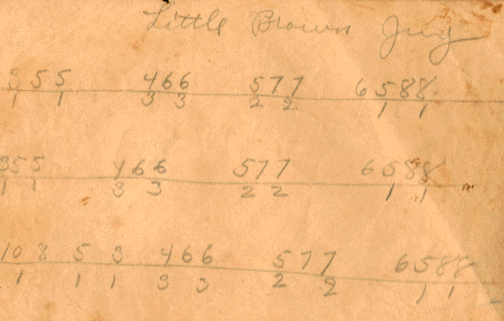 Little Brown Jug
355 466 577 6588
1 1 3 3 2 2 1 1
355 466 577 6588
1 1 3 3 2 2 1 1
10 8 5 3 466 577 6588
1 1 1 3 3 2 2 1 1